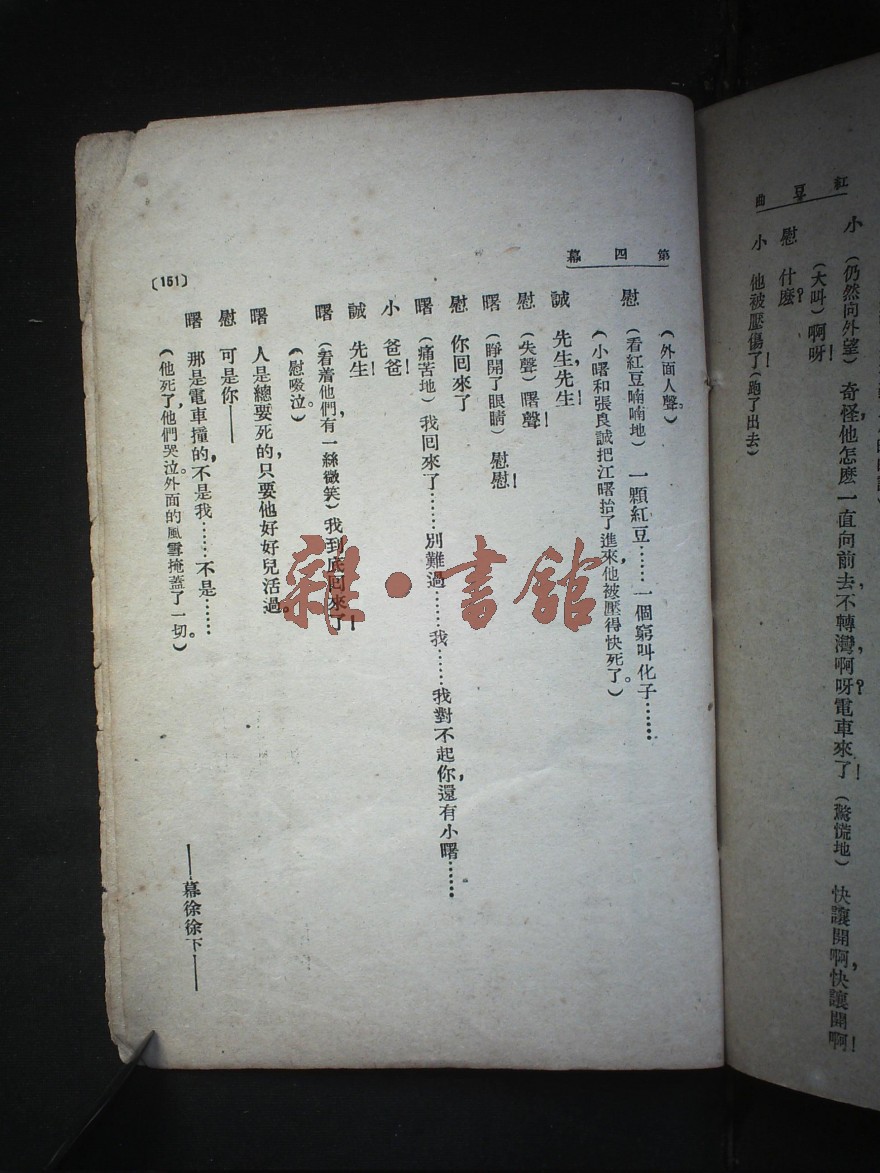 紅豆曲
小　(仍然向外望)　奇怪,他怎麽一直向前去,不轉灣?啊呀,電車來了!(驚慌地)　快讓開啊,快讓開啊!
(大叫)啊呀!
慰　什麽?
小　他被壓傷了!(跑了出去)
第四幕
(外面人聲。)
慰　(看紅豆喃喃地)　一顆紅豆……一個窮叫化子……
(小曙和張良誠把江曙抬了進來,他被壓得快死了。)
誠　先生,先生!
慰　(失聲)曙聲!
曙　(睜開了眼睛)慰慰!
慰　你回來了
曙　(痛苦地)我回來了……別難過……我……我對不起你,還有小曙……
小　爸爸!
誠　先生!
曙　(看着他們,有一絲微笑)我到底回來了!
(慰啜泣。)
曙　人是總要死的,只要他好好兒活過。
慰　可是你——
曙　那是電車撞的,不是我……不是……
(他死了,他們哭泣。外面的風雪掩蓋了一切。)
——幕徐徐下——
(151)
雜·書館